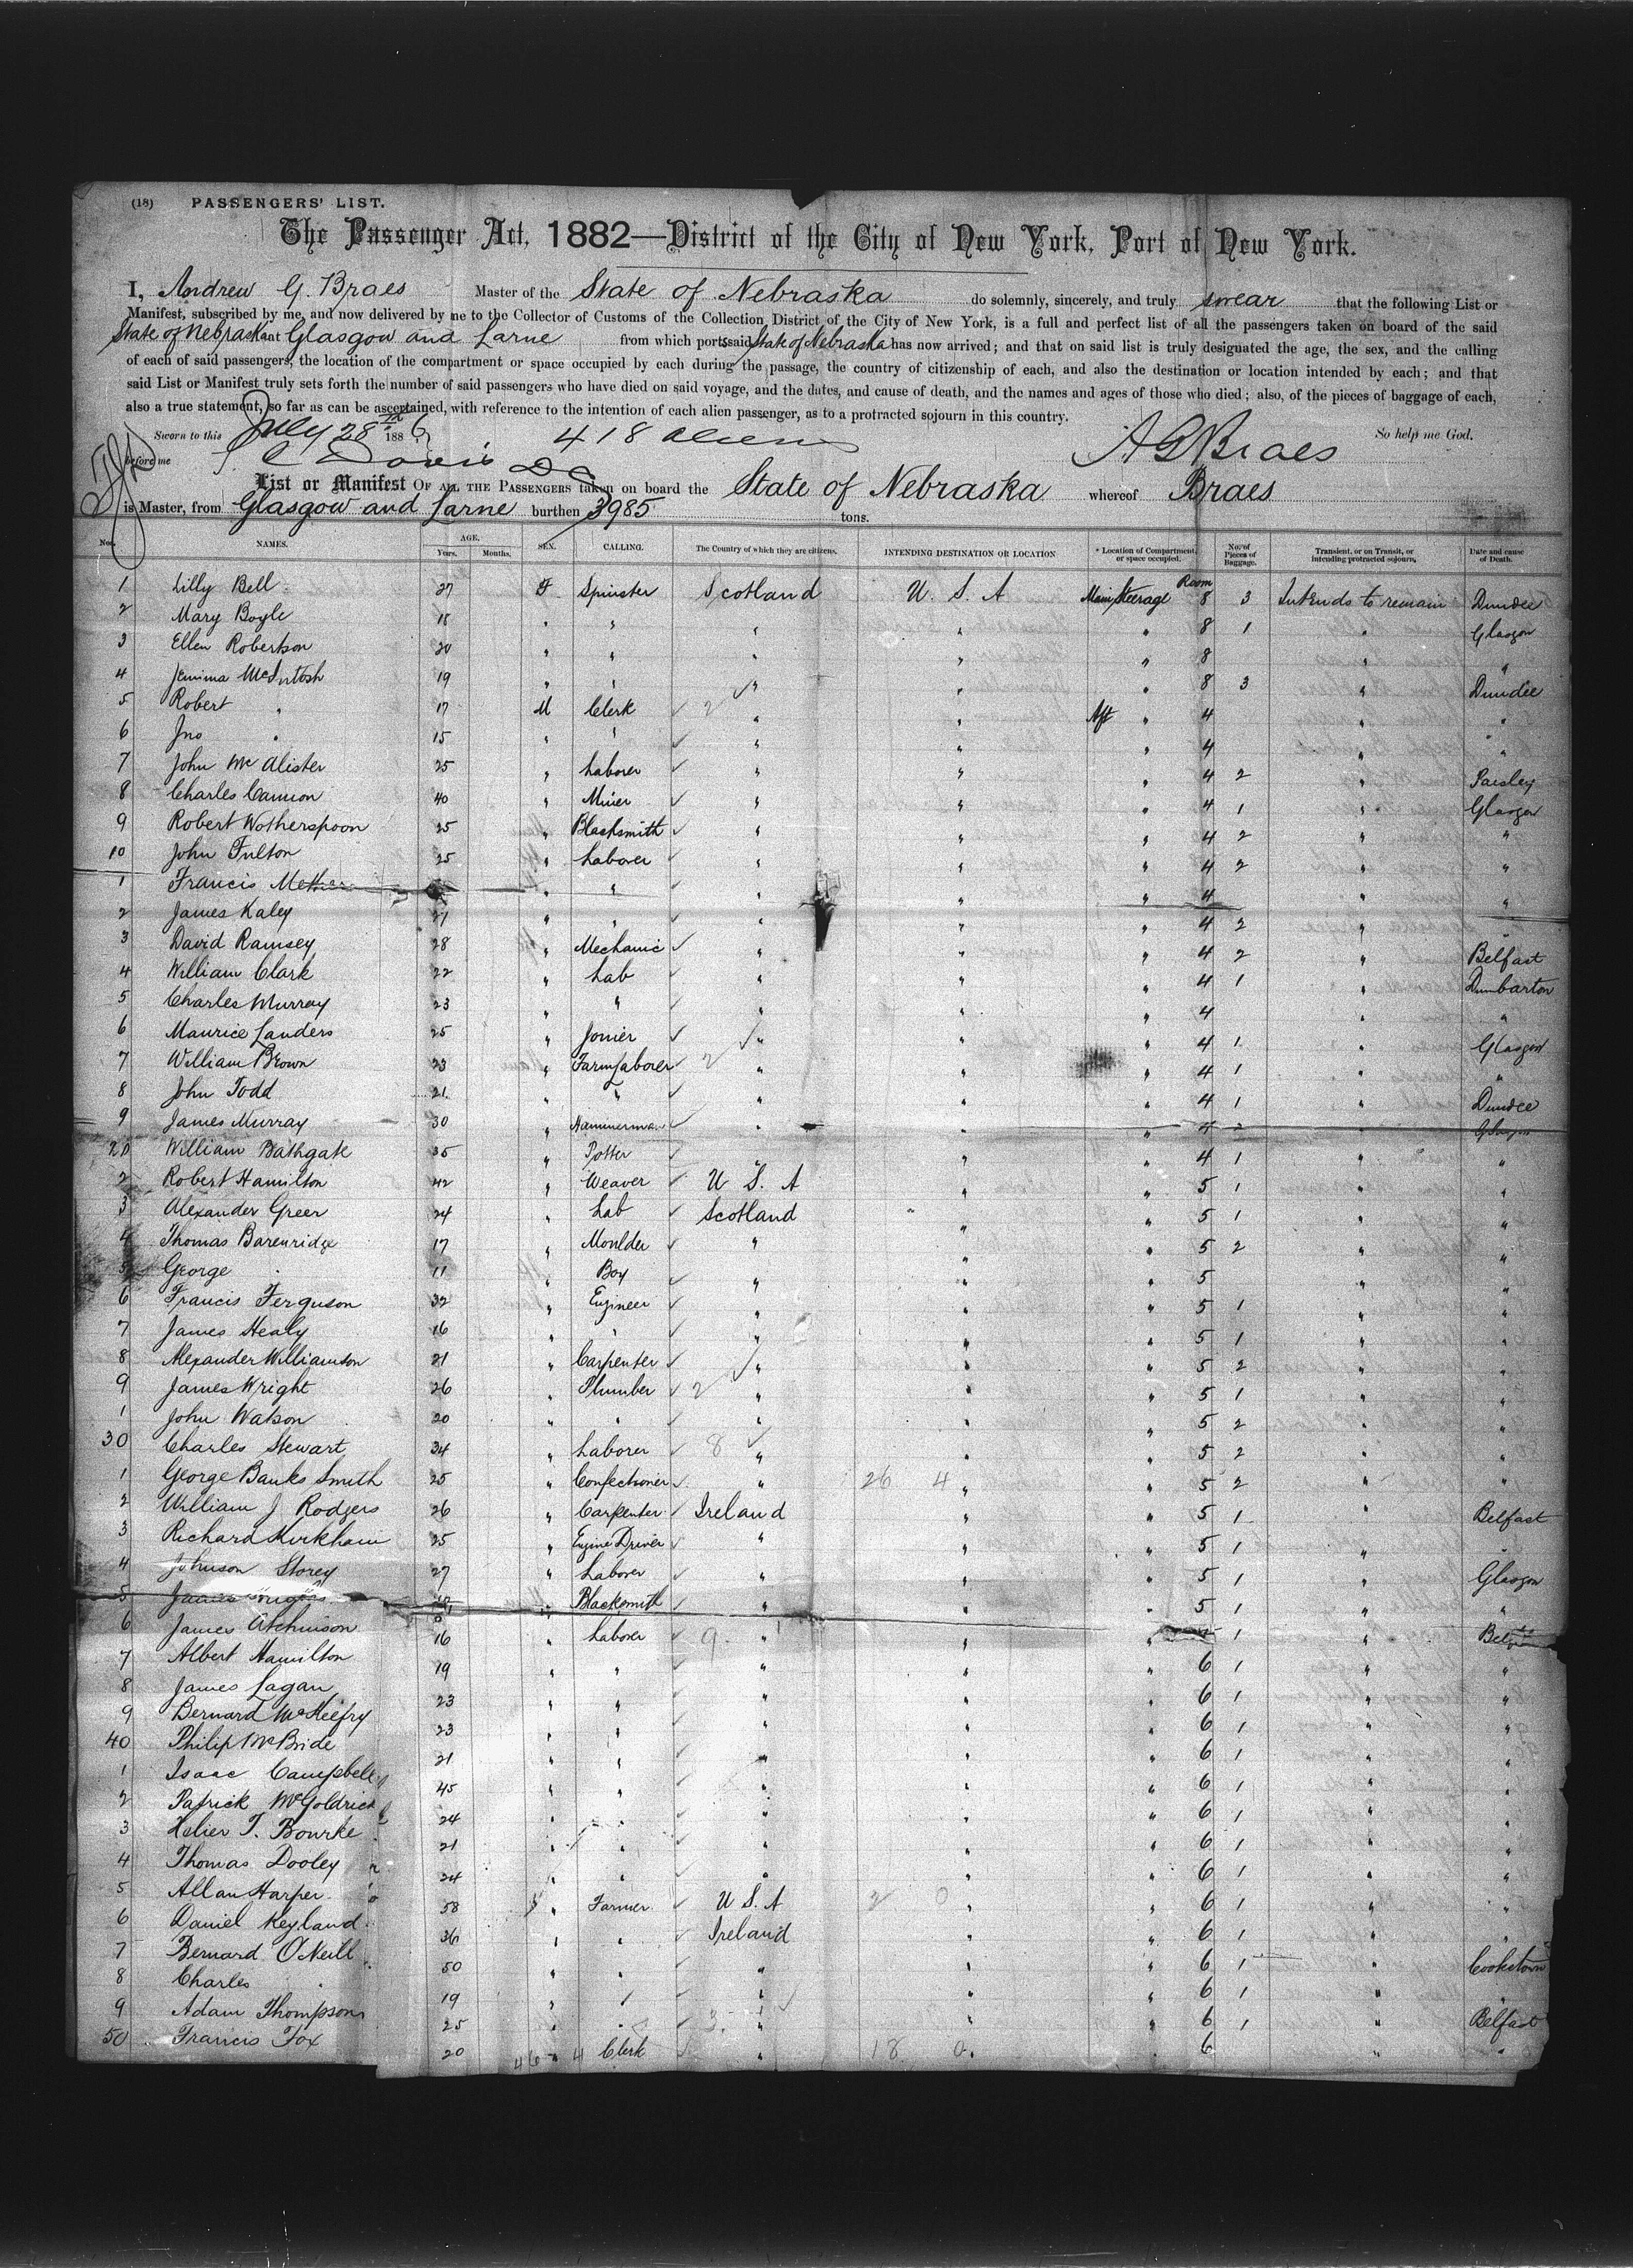 (18) PASSENGERS' LIST.
The Passenger Act, 1882—District of the City of New York, Port of New York.
I, Andrew G. Braes Master of the State of Nebraska do solemnly, sincerely, and truly swear that the following List or
Manifest, subscribed by me, and now delivered by me to the Collector of Customs of the Collection District of the City of New York, is a full and perfect list of all the passengers taken on board of the said
State of Nebraska at Glasgow and Larne from which ports said State of Nebraska has now arrived; and that on said list is truly designated the age, the sex, and the calling
of each of said passengers, the location of the compartment or space occupied by each during the passage, the country of citizenship of each, and also the destination or location intended by each; and that
said List or Manifest truly sets forth the number of said passengers who have died on said voyage, and the dates, and cause of death, and the names and ages of those who died; also, of the pieces of baggage of each,
also a true statement, so far as can be ascertained, with reference to the intention of each alien passenger, as to a protracted sojourn in this country.
Sworn to this July 28th 1886 418 aliens So help me God.
before me Davis DC A G Braes
List or Manifest OF ALL THE PASSENGERS taken on board the State of Nebraska whereof Braes
is Master, from Glasgow and Larne burthen 3985 tons.
Nos. NAMES. AGE. Years. Months. SEX. CALLING. The Country of which they are citizens. INTENDING DESTINATION OR LOCATION * Location of Compartment, or space occupied. No. of Pieces of Baggage. Transient, or on Transit, or intending protracted sojourn. Date and cause of Death.
1 Lilly Bell 27 F Spinster Scotland U. S. A Main Steerage Room 8 3 Intends to remain Dundee
2 Mary Boyle 18 " " " " " 8 1 " Glasgow
3 Ellen Robertson 20 " " " " " 8 " "
4 Jemima McIntosh 19 " " " " " 8 3 " Dundee
5 Robert " 17 M Clerk " " Aft " 4 " "
6 Jno " 15 " " " " " 4 " "
7 John McAlister 25 " Laborer " " " 4 2 " Paisley
8 Charles Cannon 40 " Miner " " " 4 1 " Glasgow
9 Robert Wotherspoon 25 " Blacksmith " " " 4 2 " "
10 John Fulton 25 " Laborer " " " 4 2 " "
1 Francis " " " " " 4 " "
2 James Kaley 21 " " " " " 4 2 " "
3 David Ramsey 28 " Mechanic " " " 4 2 " Belfast
4 William Clark 22 " Lab " " " 4 1 " Dumbarton
5 Charles Murray 23 " " " " " 4 " "
6 Maurice Landers 25 " Joiner " " " 4 1 " Glasgow
7 William Brown 23 " Farm Laborer " " " 4 1 " "
8 John Todd 21 " " " " " 4 1 " Dundee
9 James Murray 30 " Hammerman " " " 4 2 " Glasgow
20 William Bathgate 35 " Potter " " " 4 1 " "
2 Robert Hamilton 42 " Weaver U S. A " " 5 1 " "
3 Alexander Greer 24 " Lab Scotland " " 5 1 " "
4 Thomas Barenridge 17 " Moulder " " " 5 2 " "
5 George " 11 " Boy " " " 5 " "
6 Francis Ferguson 32 " Engineer " " " 5 1 " "
7 James Healy 16 " " " " " 5 1 " "
8 Alexander Williamson 21 " Carpenter " " " 5 2 " "
9 James Wright 26 " Plumber " " " 5 1 " "
1 John Watson 20 " " " " " 5 2 " "
30 Charles Stewart 34 " Laborer " " " 5 2 " "
1 George Banks Smith 25 " Confectioner " 26 4 " " 5 2 " "
2 William J Rodgers 26 " Carpenter Ireland " " 5 1 " Belfast
3 Richard Kirkham 25 " Engine Driver " " " 5 1 " "
4 Johnson Storey 27 " Laborer " " " 5 1 " Glasgow
5 James " Blacksmith " " " 5 1 " "
6 James Atchinson 16 " Laborer " " " 1 "
7 Albert Hamilton 19 " " " " " 6 1 " "
8 James Lagan 23 " " " " " 6 1 " "
9 Bernard McKeefry 23 " " " " " 6 1 " "
40 Philip McBride 21 " " " " " 6 1 " "
1 Isaac Campbell 45 " " " " " 6 1 " "
2 Patrick McGoldrick 24 " " " " " 6 1 " "
3 Helier T. Bourke 21 " " " " " 6 1 " "
4 Thomas Dooley 24 " " " " " 6 1 " "
5 Allan Harper 58 " Farmer U S. A 2 0 " " 6 1 " "
6 Daniel Keyland 36 " " Ireland " " 6 1 " "
7 Bernard O'Neill 50 " " " " " 6 1 " Cookstown
8 Charles " 19 " " " " " 6 1 " "
9 Adam Thompson 25 " " " " " 6 1 " Belfast
50 Francis Fox 20 46 4 Clerk " 18 0 " 6 " "